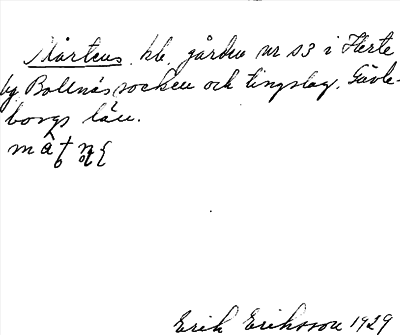 Mårtens, kle, gården nr 03 i Herte
by Bollnäs socken och tingslag, Gävle-
borgs län.
Erik Eriksson 1929